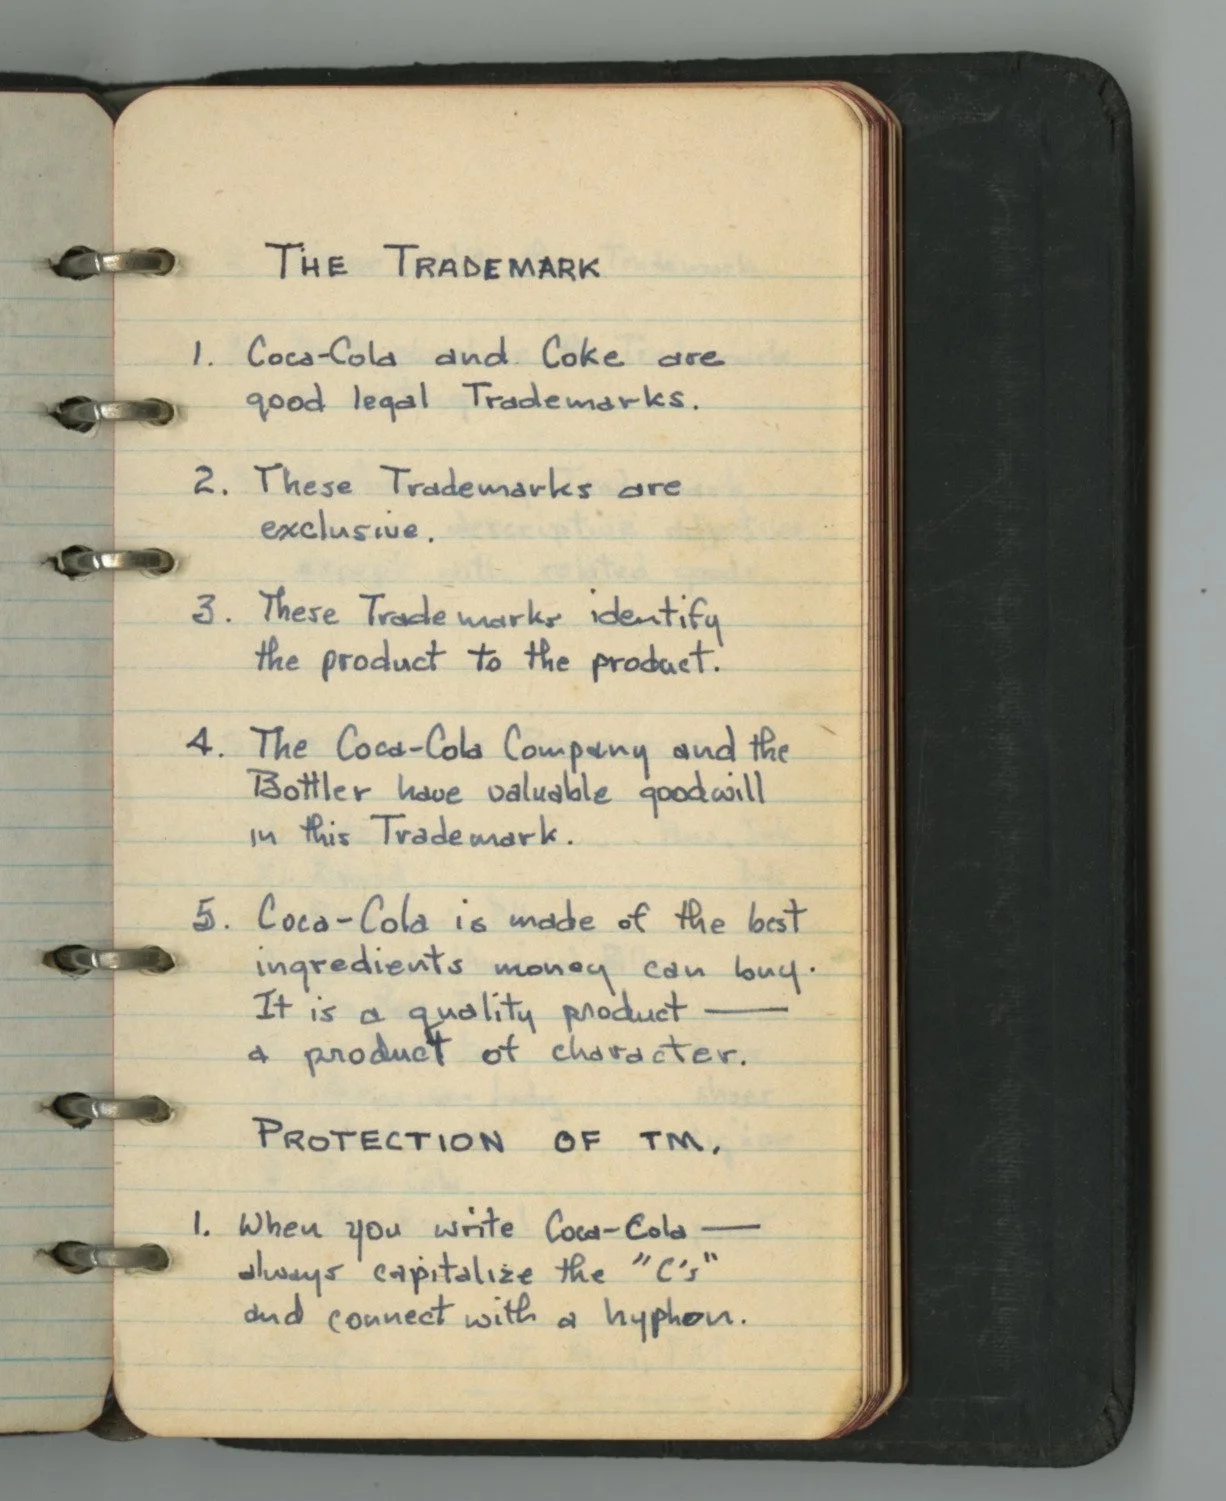 THE TRADEMARK
1. Coca-Cola and Coke are
good legal Trademarks.
2. These Trademarks are
exclusive.
3. These Trade marks identify
the product to the product.
4. The Coca-Cola Company and the
Bottler have valuable goodwill
in this Trademark.
5. Coca-Cola is made of the best
ingredients money can buy.
It is a quality product —
a product of character.
PROTECTION OF TM.
1. When you write Coca-Cola —
always capitalize the "C's"
and connect with a hyphen.